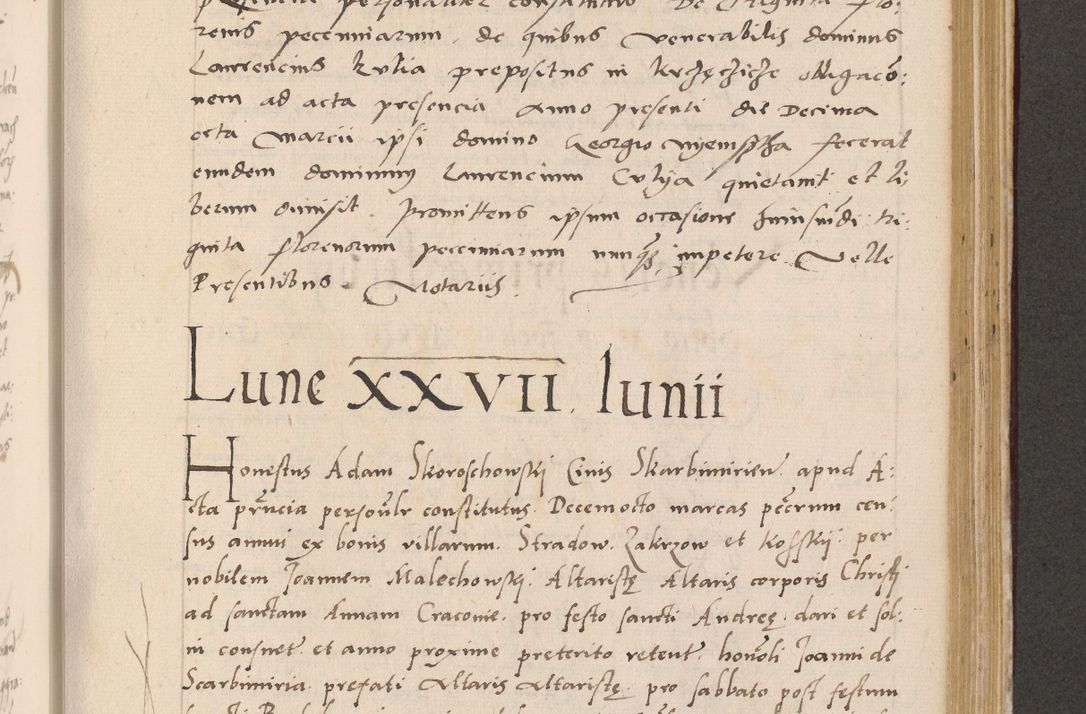 presencia personaliter constitutus De Triginta flo:
renis pecunniarum. de quibus venerabilis dominus
Laurencius Kulia prepositus in obligacō:
nem ad acta presencia anno presenti die Decima
octa Marcii ipsi domino Georgio fecerat
eundem dominum Laurencium quietavit et li:
berum dimisit. promittens ipsum occasione huiusmōdi tri:
ginta florenorum pecunniarum nunq̄ impetere velle
Presentibus Notariis.
Lune XXVII. Iunii
Honestus Adam Skoroschowskj Civis Skarbimirien̄. apud A:
cta pr̄ncia personl̄r constitutus. Decemocto marcas pēcrum cen:
sus annui ex bonis villarum. Stradow. Zakrzow et Kosskij. per
nobilem Joannem Malechowskj. Altaristę Altaris corporis Christi
ad sanctam Annam Cracovie. pro festo sancti Andreę. dari et sol:
vi consuet̄. et anno proxime preterito retent̄. honōli Joanni de
Scarbimiria. prefati Altaris Altaristę. pro sabbato post festum